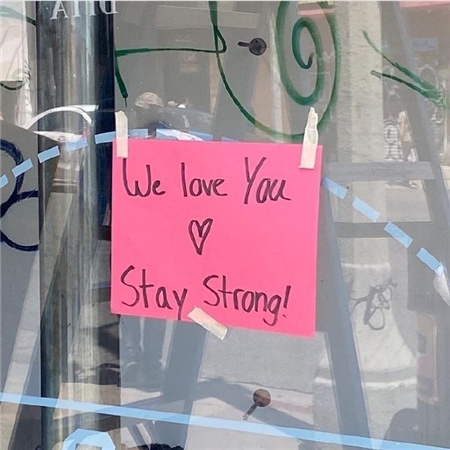 We love You
♡
Stay Strong!